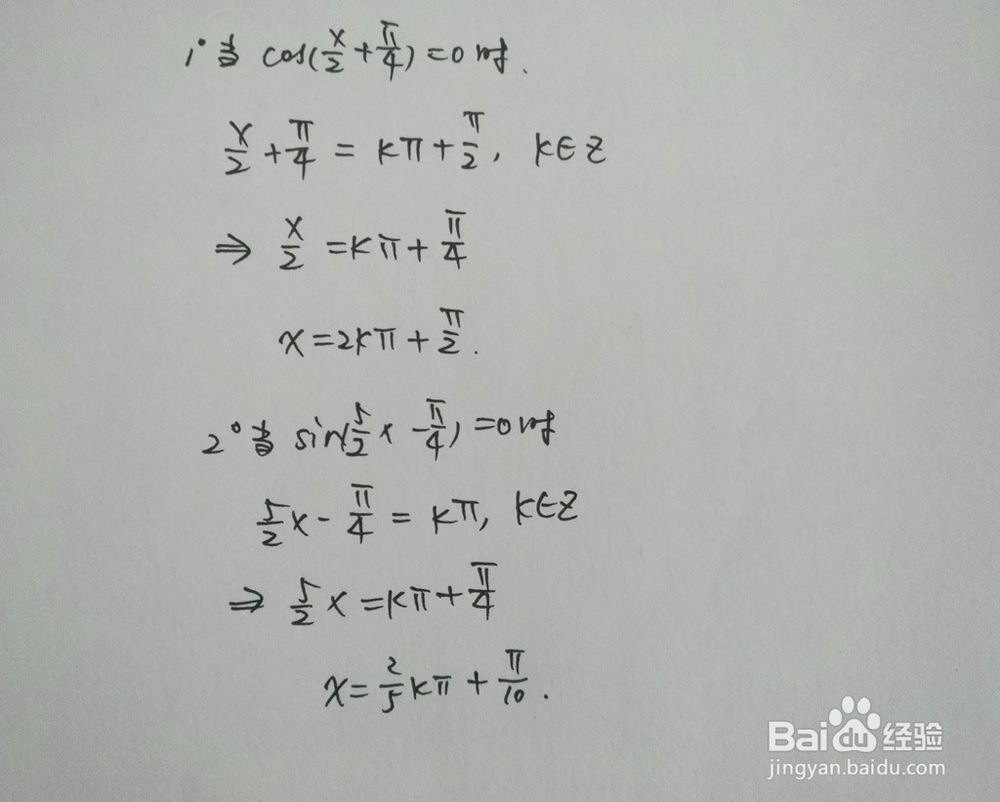 1° 当 cos(x/2 + π/4) = 0 时.
x/2 + π/4 = kπ + π/2, k∈Z
⇒ x/2 = kπ + π/4
x = 2kπ + π/2.
2° 当 sin(5/2 x - π/4) = 0 时
5/2 x - π/4 = kπ, k∈Z
⇒ 5/2 x = kπ + π/4
x = 2/5 kπ + π/10.
Baidu 经验
jingyan.baidu.com